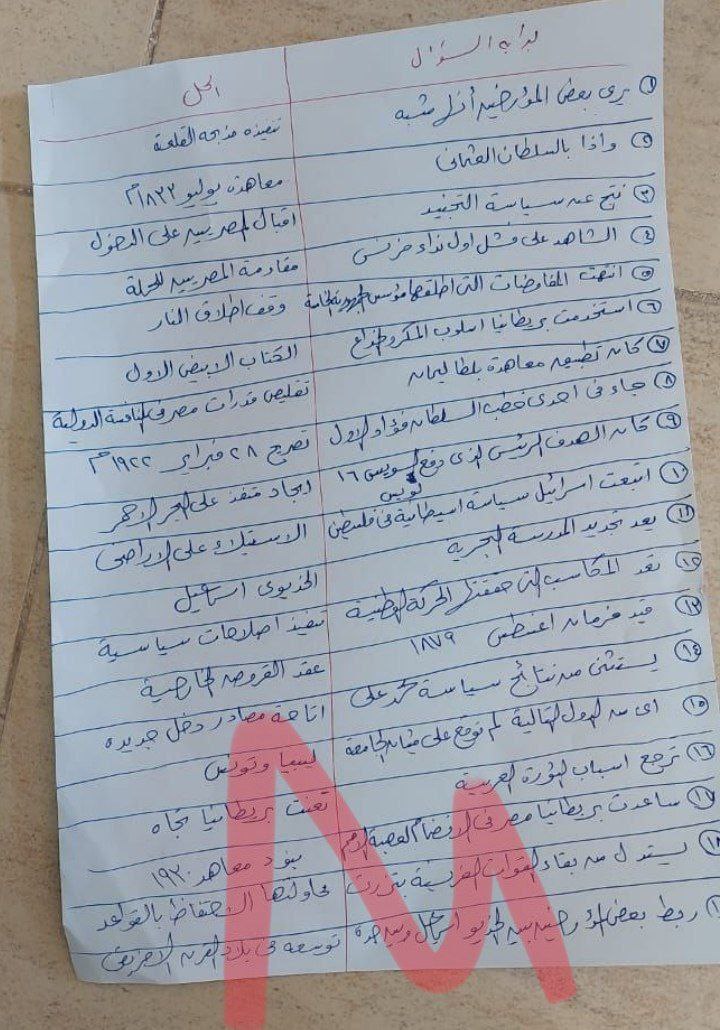 بداية السؤال
الحل
١ يرى بعض المؤرخين أن شبه
تنفيذه مذبحة القلعة
٢ واذا بالسلطان العثمانى
معاهدة يوليو ١٨٣٣م
٣ نتج عن سياسة التجنيد
اقبال المصريين على الدخول
٤ الشاهد على فشل اول نداء فرنسى
مقاومة المصريين للحملة
٥ انتهت المفاوضات التى اطلقها مؤسس الجمهورية الخامسة
وقف اطلاق النار
٦ استخدمت بريطانيا اسلوب المكر والخداع
الكتاب الابيض الاول
٧ كان تطبيق معاهدة بلطا ليمان
تقليص قدرات مصر فى المنافسة الدولية
٨ جاء فى احدى خطب السلطان فؤاد الاول
تصريح ٢٨ فبراير ١٩٢٢م
٩ كان الهدف الرئيس الذى دفع لويس ١٦
ايجاد منفذ على البحر الاحمر
١٠ اتبعت اسرائيل سياسة استيطانية فى فلسطين
الاستيلاء على الاراضى
١١ يعد تجديد المدرسة البحرية
الخديوى اسماعيل
١٢ تعد المكاسب التى حققتها الحركة الوطنية
تنفيذ اصلاحات سياسية
١٣ قيد فرمان اغسطس ١٨٧٩
عقد القروض الخارجية
١٤ يستثنى من نتائج سياسة محمد على
اتاحة مصادر دخل جديده
١٥ اى من الدول التالية لم توقع على ميثاق الجامعة
ليبيا وتونس
١٦ ترجع اسباب الثورة العربية
تعنت بريطانيا تجاه
١٧ ساعدت بريطانيا مصر فى الانضمام لعصبة الامم
بنود معاهد ١٩٣٠
١٨ يستدل من بقاء القوات الفرنسية بتنزرت
محاولتها الاحتفاظ بالقواعد
ربط بعض المؤرخين بين الخديو اسماعيل وبين
توسعه فى بلاد القرن الافريقى
M